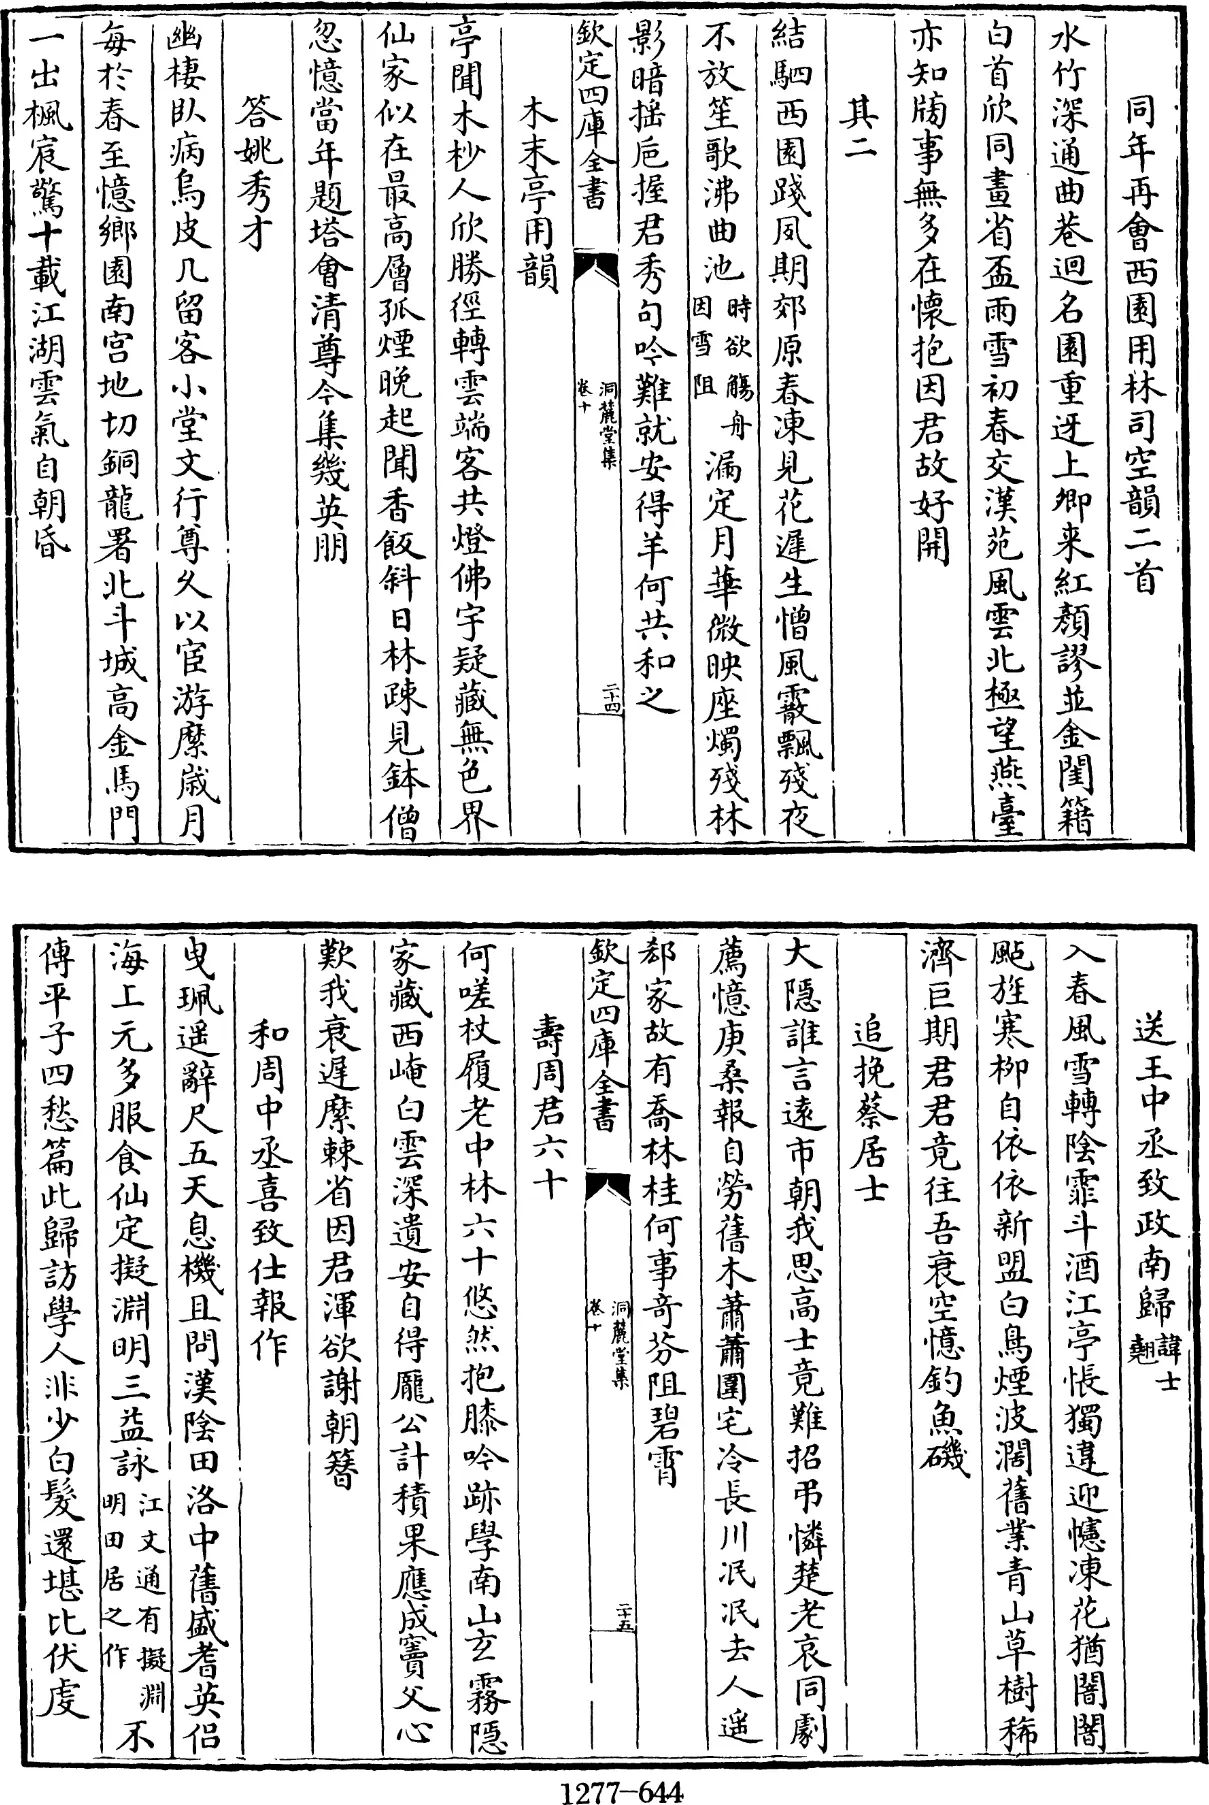 同年再會西園用林司空韻二首
水竹深通曲巷迴名園重迓上卿来紅顔謬並金閨籍
白首欣同畫省盃雨雪初春交漢苑風雲北極望燕臺
亦知牓事無多在懐抱因君故好開
其二
結駟西園踐夙期郊原春凍見花遲生憎風霰飄殘夜
不放笙歌沸曲池時欲觴舟因雪阻漏定月華微映座燭殘林
影暗揺巵握君秀句吟難就安得羊何共和之
欽定四庫全書
洞麓堂集
卷十
二十四
木末亭用韻
亭聞木杪人欣勝徑轉雲端客共燈佛宇疑藏無色界
仙家似在最高層孤煙晚起聞香飯斜日林疎見鉢僧
忽憶當年題塔會清尊今集幾英朋
答姚秀才
幽棲卧病烏皮几留客小堂文行尊久以宦游縻歲月
每於春至憶鄉園南宫地切銅龍署北斗城高金馬門
一出楓宸驚十載江湖雲氣自朝昏
送王中丞致政南歸諱士翹
入春風雪轉陰霏斗酒江亭悵獨違迎幰凍花猶闇闇
颭旌寒柳自依依新盟白鳥煙波濶舊業青山草樹稀
濟巨期君君竟往吾衰空憶釣魚磯
追挽蔡居士
大隠誰言遠市朝我思高士竟難招弔憐楚老哀同劇
薦憶庚桑報自勞舊木蕭蕭圍宅冷長川泯泯去人遥
郄家故有喬林桂何事奇芬阻碧霄
欽定四庫全書
洞麓堂集
卷十
二十五
壽周君六十
何嗟杖履老中林六十悠然抱膝吟跡學南山玄霧隠
家藏西崦白雲深遺安自得龎公計積果應成竇父心
歎我衰遲縻棘省因君渾欲謝朝簪
和周中丞喜致仕報作
曳珮遥辭尺五天息機且問漢陰田洛中舊盛耆英侣
海上元多服食仙定擬淵明三益詠江文通有擬淵明田居之作不
傳平子四愁篇此歸訪學人非少白髮還堪比伏虔
1277-644